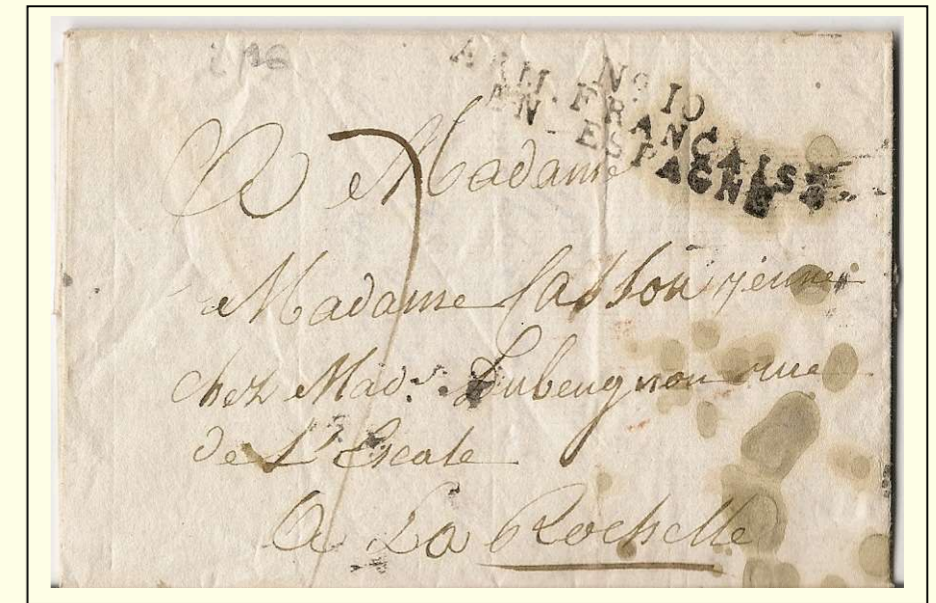 No 10
ARM. FRANÇAISE
EN ESPAGNE
7
A Madame
Madame jeune
chez Made. Dubeugnon rue
de L'Escale
A La Rochelle